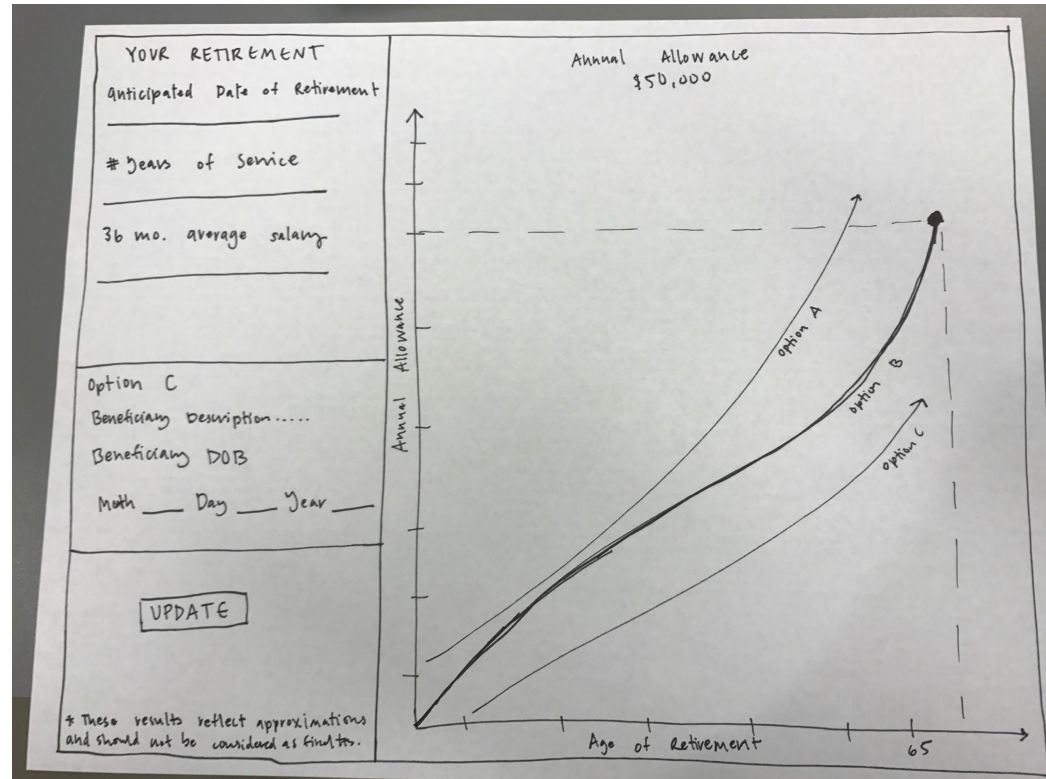 YOUR RETIREMENT
Anticipated Date of Retirement
# Years of Service
36 mo. average salary
Option C
Beneficiary Description.....
Beneficiary DOB
Month ___ Day ___ Year ___
UPDATE
* These results reflect approximations
and should not be considered as
Annual Allowance
$50,000
Annual Allowance
Option A
Option B
Option C
65
Age of Retirement